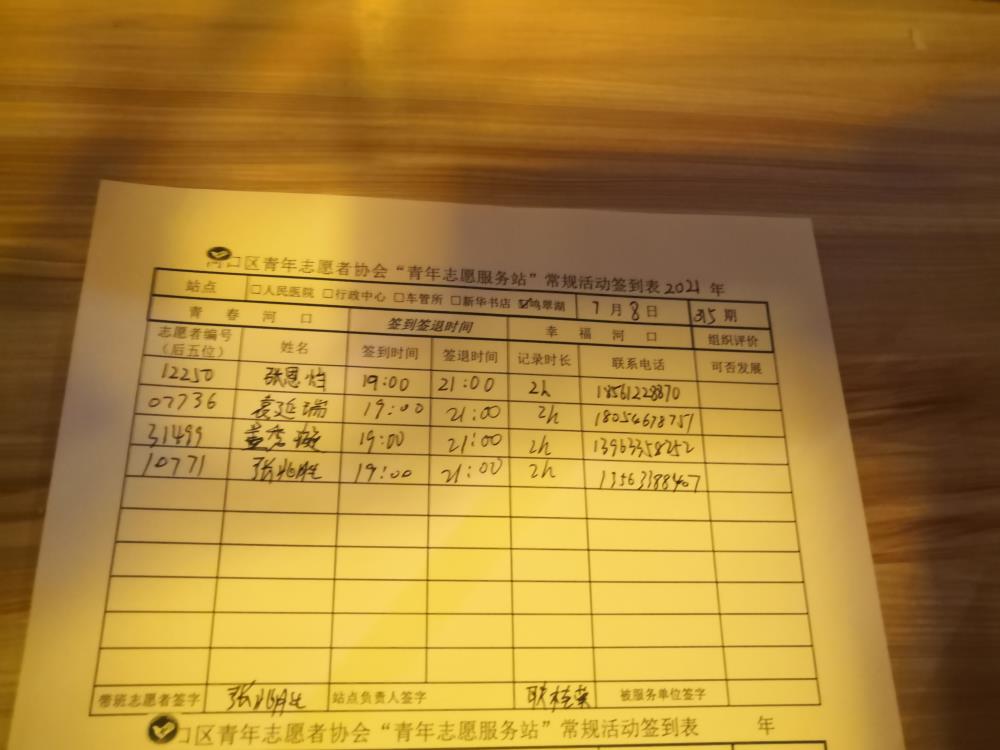 口区青年志愿者协会“青年志愿服务站”常规活动签到表2021年
站点 □人民医院 □行政中心 □车管所 □新华书店 ☑鸣翠湖 7月8日 期
青春河口 签到签退时间 幸福河口 组织评价
志愿者编号（后五位） 姓名 签到时间 签退时间 记录时长 联系电话 可否发展
12250 张恩灿 19:00 21:00 2h 18561228870
07736 袁延瑞 19:00 21:00 2h 18054678751
31499 董秀 19:00 21:00 2h 13963358252
10771 张兆胜 19:00 21:00 2h 13563188407
带班志愿者签字 张兆胜 站点负责人签字 耿桂荣 被服务单位签字
口区青年志愿者协会“青年志愿服务站”常规活动签到表 年